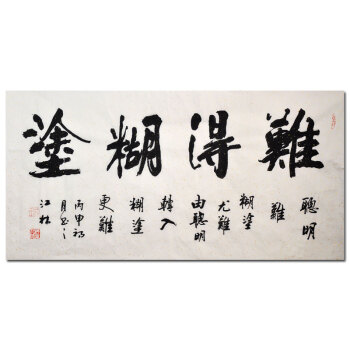 難得糊塗
聰明
難
糊塗
尤難
由聰明
轉入
糊塗
更難
丙申
月
江